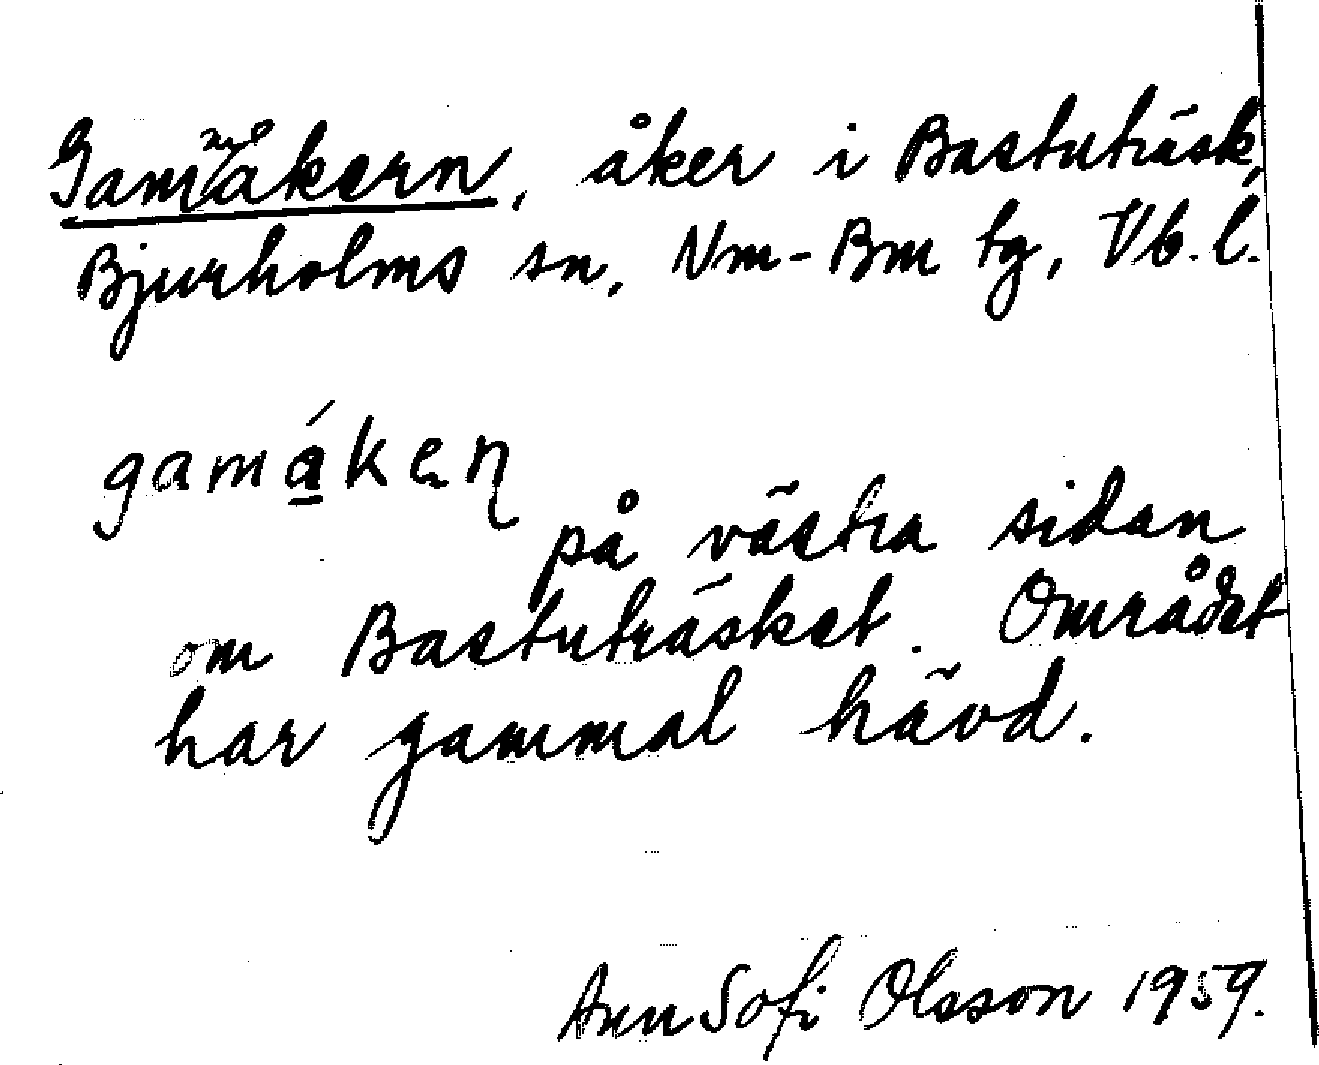 Gammåkern, åker i Bastuträsk,
Bjurholms sn, Nm-Bm tg, Vb. l.
gamá̱keɳ
på västra sidan
om Bastuträsket. Området
har gammal hävd.
Ann Sofi Olsson 1959.